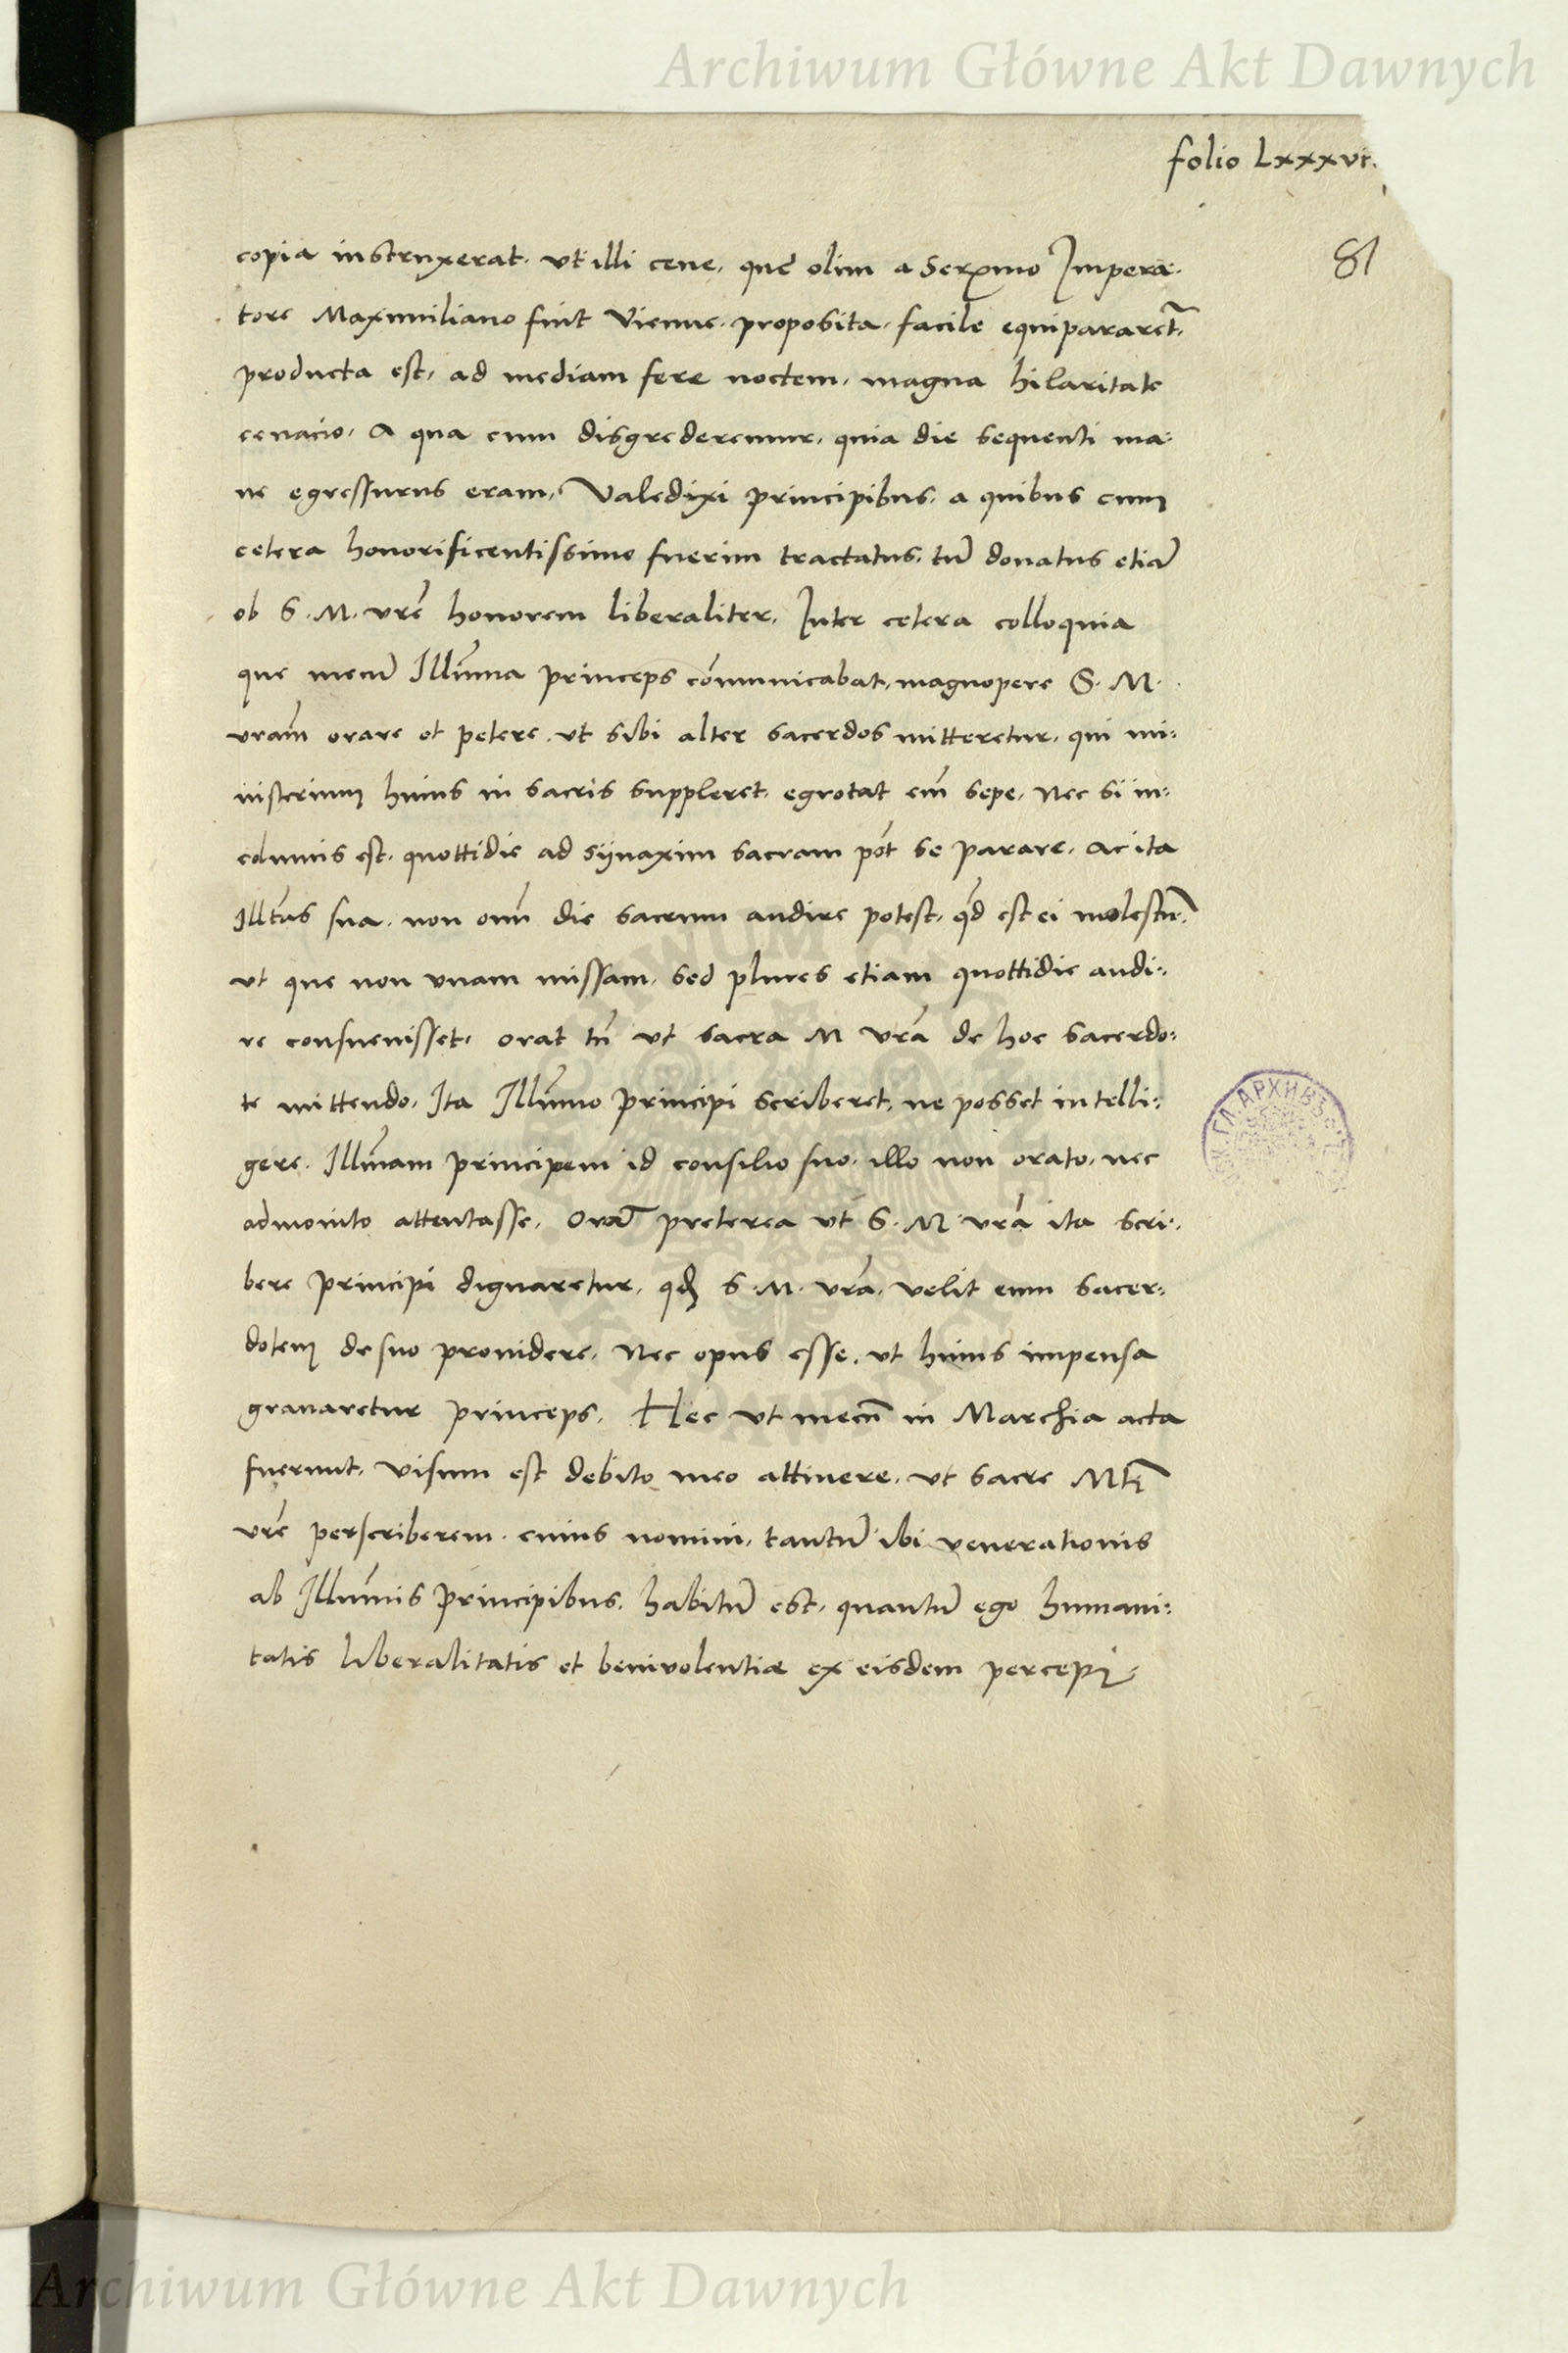 Archiwum Główne Akt Dawnych
folio Lxxxvi.
81
copia instruxerat. ut illi cene, que olim a Serenmo Impera:
tore Maximiliano fuit Vienne. proposita. facile equiparet̃.
producta est, ad mediam fere noctem, magna hilaritate
cenacio. A qua cum disgrederemur, quia die sequenti ma:
ne egressurus eram, Valedixi principibus. a quibus cum
cetera honorificentissime fuerim tractatus. tũ donatus etiã
ob S. M. vrẽ honorem liberaliter. Inter cetera colloquia
que mecũ Illm̃a princeps cõmunicabat, magnopere S. M.
vram̃ orare et petere. ut sibi alter sacerdos mitteretur, qui mi:
nisterium huius in sacris suppleret. egrotat em̃ sepe, nec si in:
columis est. quottidie ad synaxim sacram põt se parare. Ac ita
Illt̃as sua. non om̃i die sacrum audire potest. qd̃ est ei molestũ.
ut que non unam missam, sed plures etiam quottidie audi:
re consuevisset. orat tñ ut sacra M vrã de hoc sacerdo:
te mittendo. Ita Illm̃o principi scriberet, ne posset intelli:
gere. Illm̃am principem id consilio suo. illo non orato. nec
admonito attentasse. Orat̃ preterea ut S. M. vrã ita scri:
bere principi dignaretur. qd̃ S. M. vrã. velit eum sacer:
dotem de suo providere. Nec opus esse. ut huius impensa
gravaretur princeps. Hec ut mecũ in Marchia acta
fuerunt. visum est debito meo attinere. ut sacre Mt̃i
vrẽ perscriberem. cuius nomini. tantũ ibi venerationis
ab Illm̃is principibus. habitũ est. quantũ ego humani:
tatis liberalitatis et benivolentiæ ex eisdem percepi.
Archiwum Główne Akt Dawnych